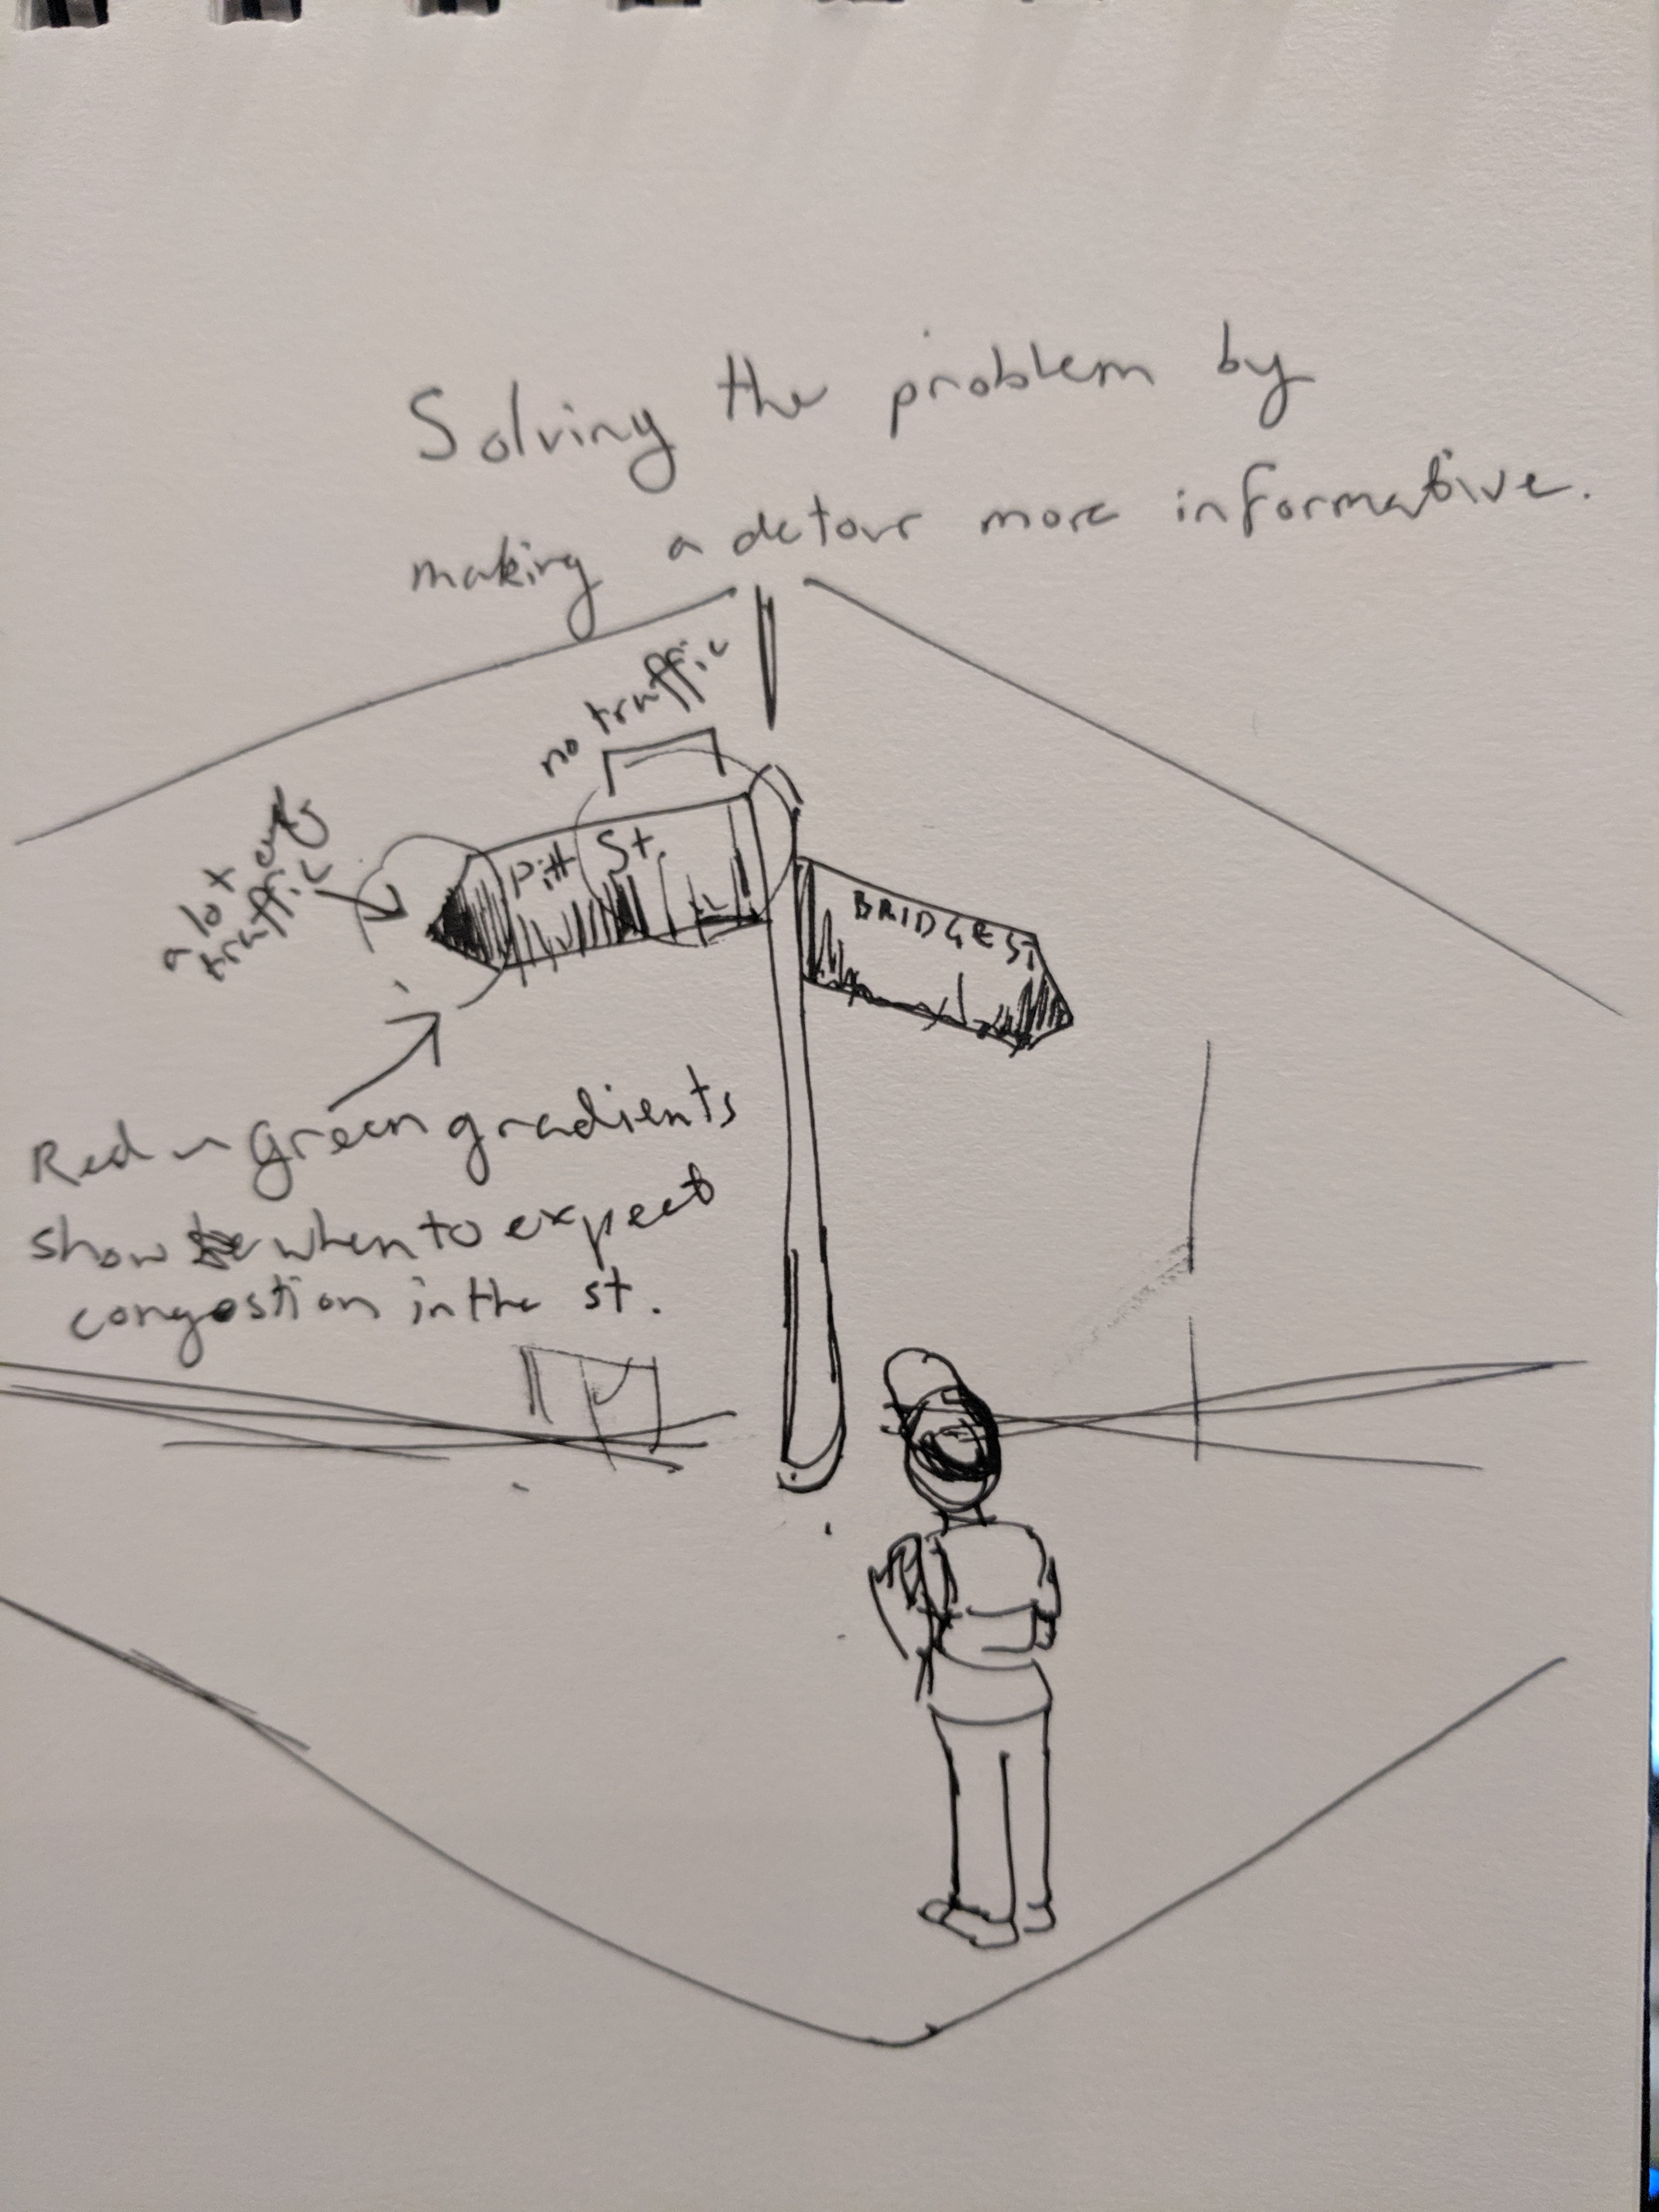 Solving the problem by
making a detour more informative.
no traffic
a lot
traffic
Pitt St.
BRIDGE ST
Red Green gradients
show when to expect
congestion in the st.